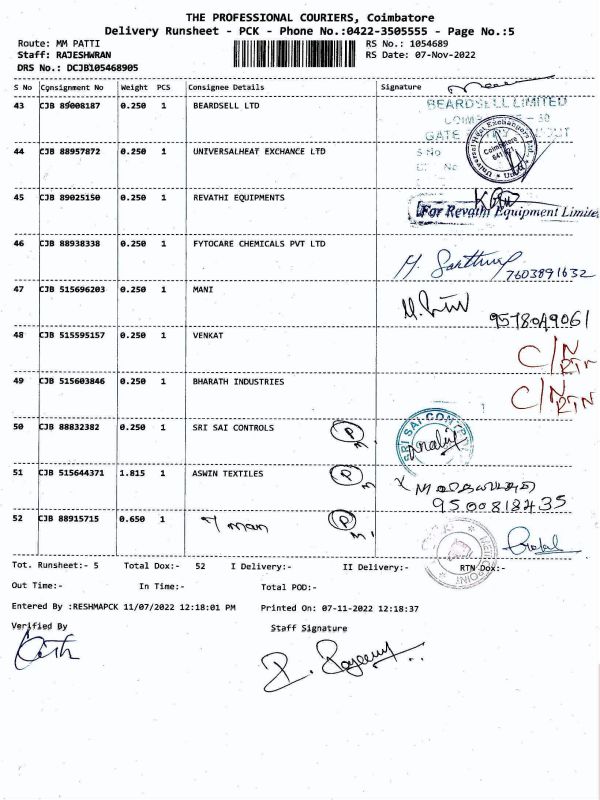 THE PROFESSIONAL COURIERS, Coimbatore
Delivery Runsheet - PCK - Phone No.:0422-3505555 - Page No.:5
Route: MM PATTI RS No.: 1054689
Staff: RAJESHWRAN RS Date: 07-Nov-2022
DRS No.: DCJB105468905
S No Consignment No Weight PCS Consignee Details Signature
43 CJB 89008187 0.250 1 BEARDSELL LTD BEARDSELL LIMITED
GATE
44 CJB 88957872 0.250 1 UNIVERSALHEAT EXCHANGE LTD S No
Universal Heat Exchangers Coimbatore
45 CJB 89025150 0.250 1 REVATHI EQUIPMENTS
For Revathi Equipment Limited
46 CJB 88938338 0.250 1 FYTOCARE CHEMICALS PVT LTD
7603891632
47 CJB 515696203 0.250 1 MANI
9578049061
48 CJB 515595157 0.250 1 VENKAT C/N RTN
49 CJB 515603846 0.250 1 BHARATH INDUSTRIES C/N RTN
50 CJB 88832382 0.250 1 SRI SAI CONTROLS P SRI SAI CONTROLS
51 CJB 515644371 1.815 1 ASWIN TEXTILES P
9500818435
52 CJB 88915715 0.650 1 T man P
Tot. Runsheet:- 5 Total Dox:- 52 I Delivery:- II Delivery:- RTN Dox:-
Out Time:- In Time:- Total POD:-
Entered By :RESHMAPCK 11/07/2022 12:18:01 PM Printed On: 07-11-2022 12:18:37
Verified By Staff Signature